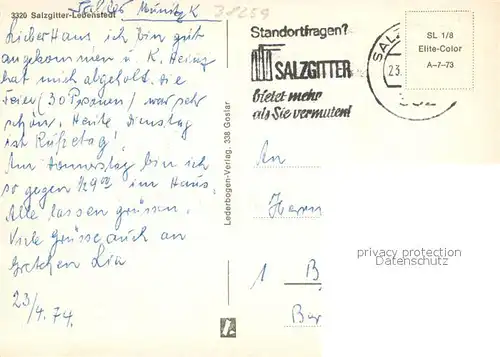 3320 Salzgitter-Lebenstedt
38259
Lieber Hans ich bin gut
angekommen u. K. Heinz
hat mich abgeholt. die
Feier (30 Personen) war sehr
schön. Heute Dienstag
ist Ruhetag!
Am Donnerstag bin ich
so gegen 1/29 00 im Haus.
Alle lassen grüssen.
Viele Grüsse auch an
Gretchen Lia
23/4. 74.
Lederbogen-Verlag, 338 Goslar
Standortfragen?
SALZGITTER
bietet mehr
als Sie vermuten!
SALZ
23.
SL 1/8
Elite-Color
A-7-73
An
Herrn
1 B
privacy protection
Datenschutz